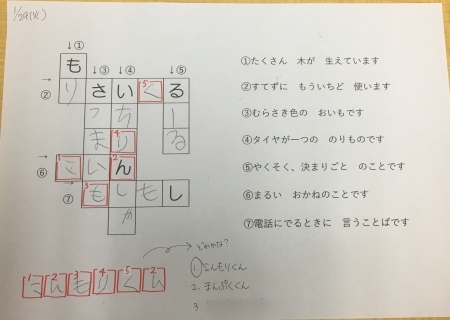 1/29(火)
↓①
も
↓③ ↓④ ↓⑤
→ ② り さ い 5く る
つ ち ー
ま 4り る
→ ⑥ 1こ い 2ん
→ ⑦ 3も し も し
ゃ
①たくさん 木が 生えています
②すてずに もういちど 使います
③むらさき色の おいもです
④タイヤが一つの のりものです
⑤やくそく、決まりごと のことです
⑥まるい おかねのことです
⑦電話にでるときに 言うことばです
1こ 2ん 3も 4り 5く 2ん
どれかな?
1. こんもりくん
2. まんぷくくん
3